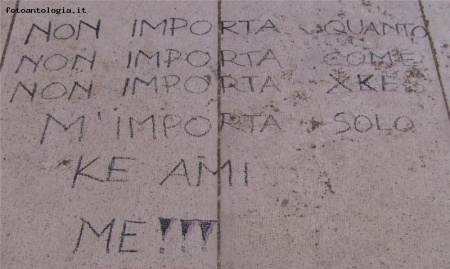 fotoantologia.it
NON IMPORTA QUANTO
NON IMPORTA COME
NON IMPORTA XKÈ
M'IMPORTA SOLO
KE AMI
ME!!!